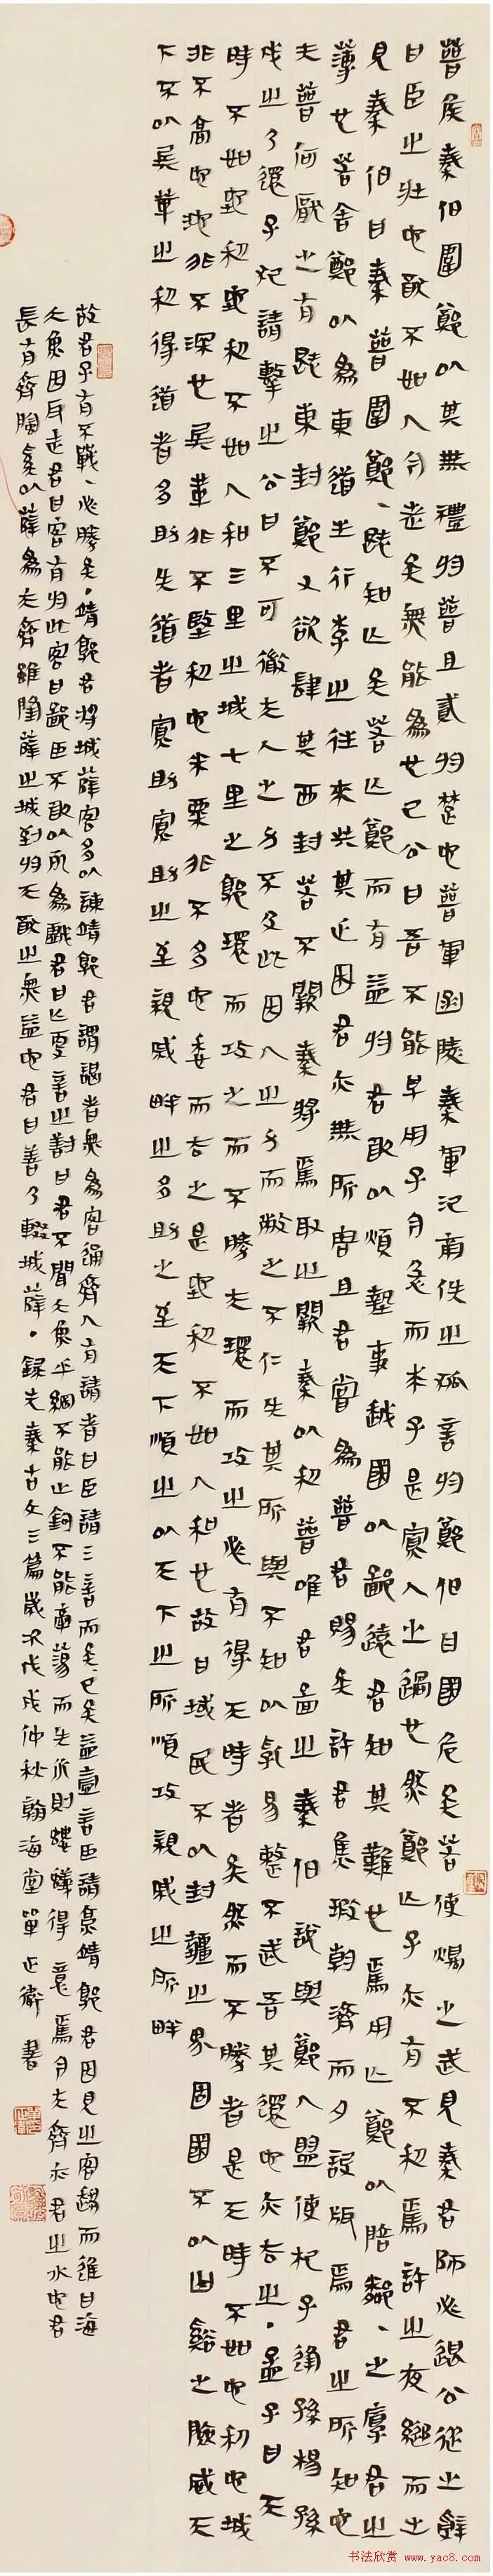 晉侯秦伯圍鄭以其無禮於晉且貳於楚也晉軍函陵秦軍氾南佚之狐言於鄭伯曰國危矣若使燭之武見秦君師必退公從之辭
曰臣之壯也猶不如人今老矣無能爲也已公曰吾不能早用子今急而求子是寡人之過也然鄭亡子亦有不利焉許之夜縋而出
見秦伯曰秦晉圍鄭、既知亡矣若亡鄭而有益於君敢以煩執事越國以鄙遠君知其難也焉用亡鄭以陪鄰、之厚君之
薄也若舍鄭以爲東道主行李之往來共其乏困君亦無所害且君嘗爲晉君賜矣許君焦瑕朝濟而夕設版焉君之所知也
夫晉何厭之有既東封鄭又欲肆其西封若不闕秦將焉取之闕秦以利晉唯君圖之秦伯說與鄭人盟使杞子逢孫楊孫
戍之乃還子犯請擊之公曰不可微夫人之力不及此因人之力而敝之不仁失其所與不知以亂易整不武吾其還也亦去之。孟子曰天
時不如地利地利不如人和三里之城七里之郭環而攻之而不勝夫環而攻之必有得天時者矣然而不勝者是天時不如地利也城
非不高也池非不深也兵革非不堅利也米粟非不多也委而去之是地利不如人和也故曰域民不以封疆之界固國不以山谿之險威天
下不以兵革之利得道者多助失道者寡助寡助之至親戚畔之多助之至天下順之以天下之所順攻親戚之所畔
故君子有不戰、必勝矣。靖郭君將城薛客多以諫靖郭君謂謁者無爲客通齊人有請者曰臣請三言而矣已矣益壹言臣請烹靖郭君因見之客趨而進曰海
大魚因反走君曰客有於此客曰鄙臣不敢以死爲戲君曰亡更言之對曰君不聞大魚乎網不能止鉤不能牽蕩而失水則螻蟻得意焉今夫齊亦君之水也君
長有齊陰奚以薛爲夫齊雖隆薛之城到於天猶之無益也君曰善乃輟城薛。錄先秦古文三篇歲次戊戌仲秋翰海堂單正衛書
书法欣赏 www.yac8.com